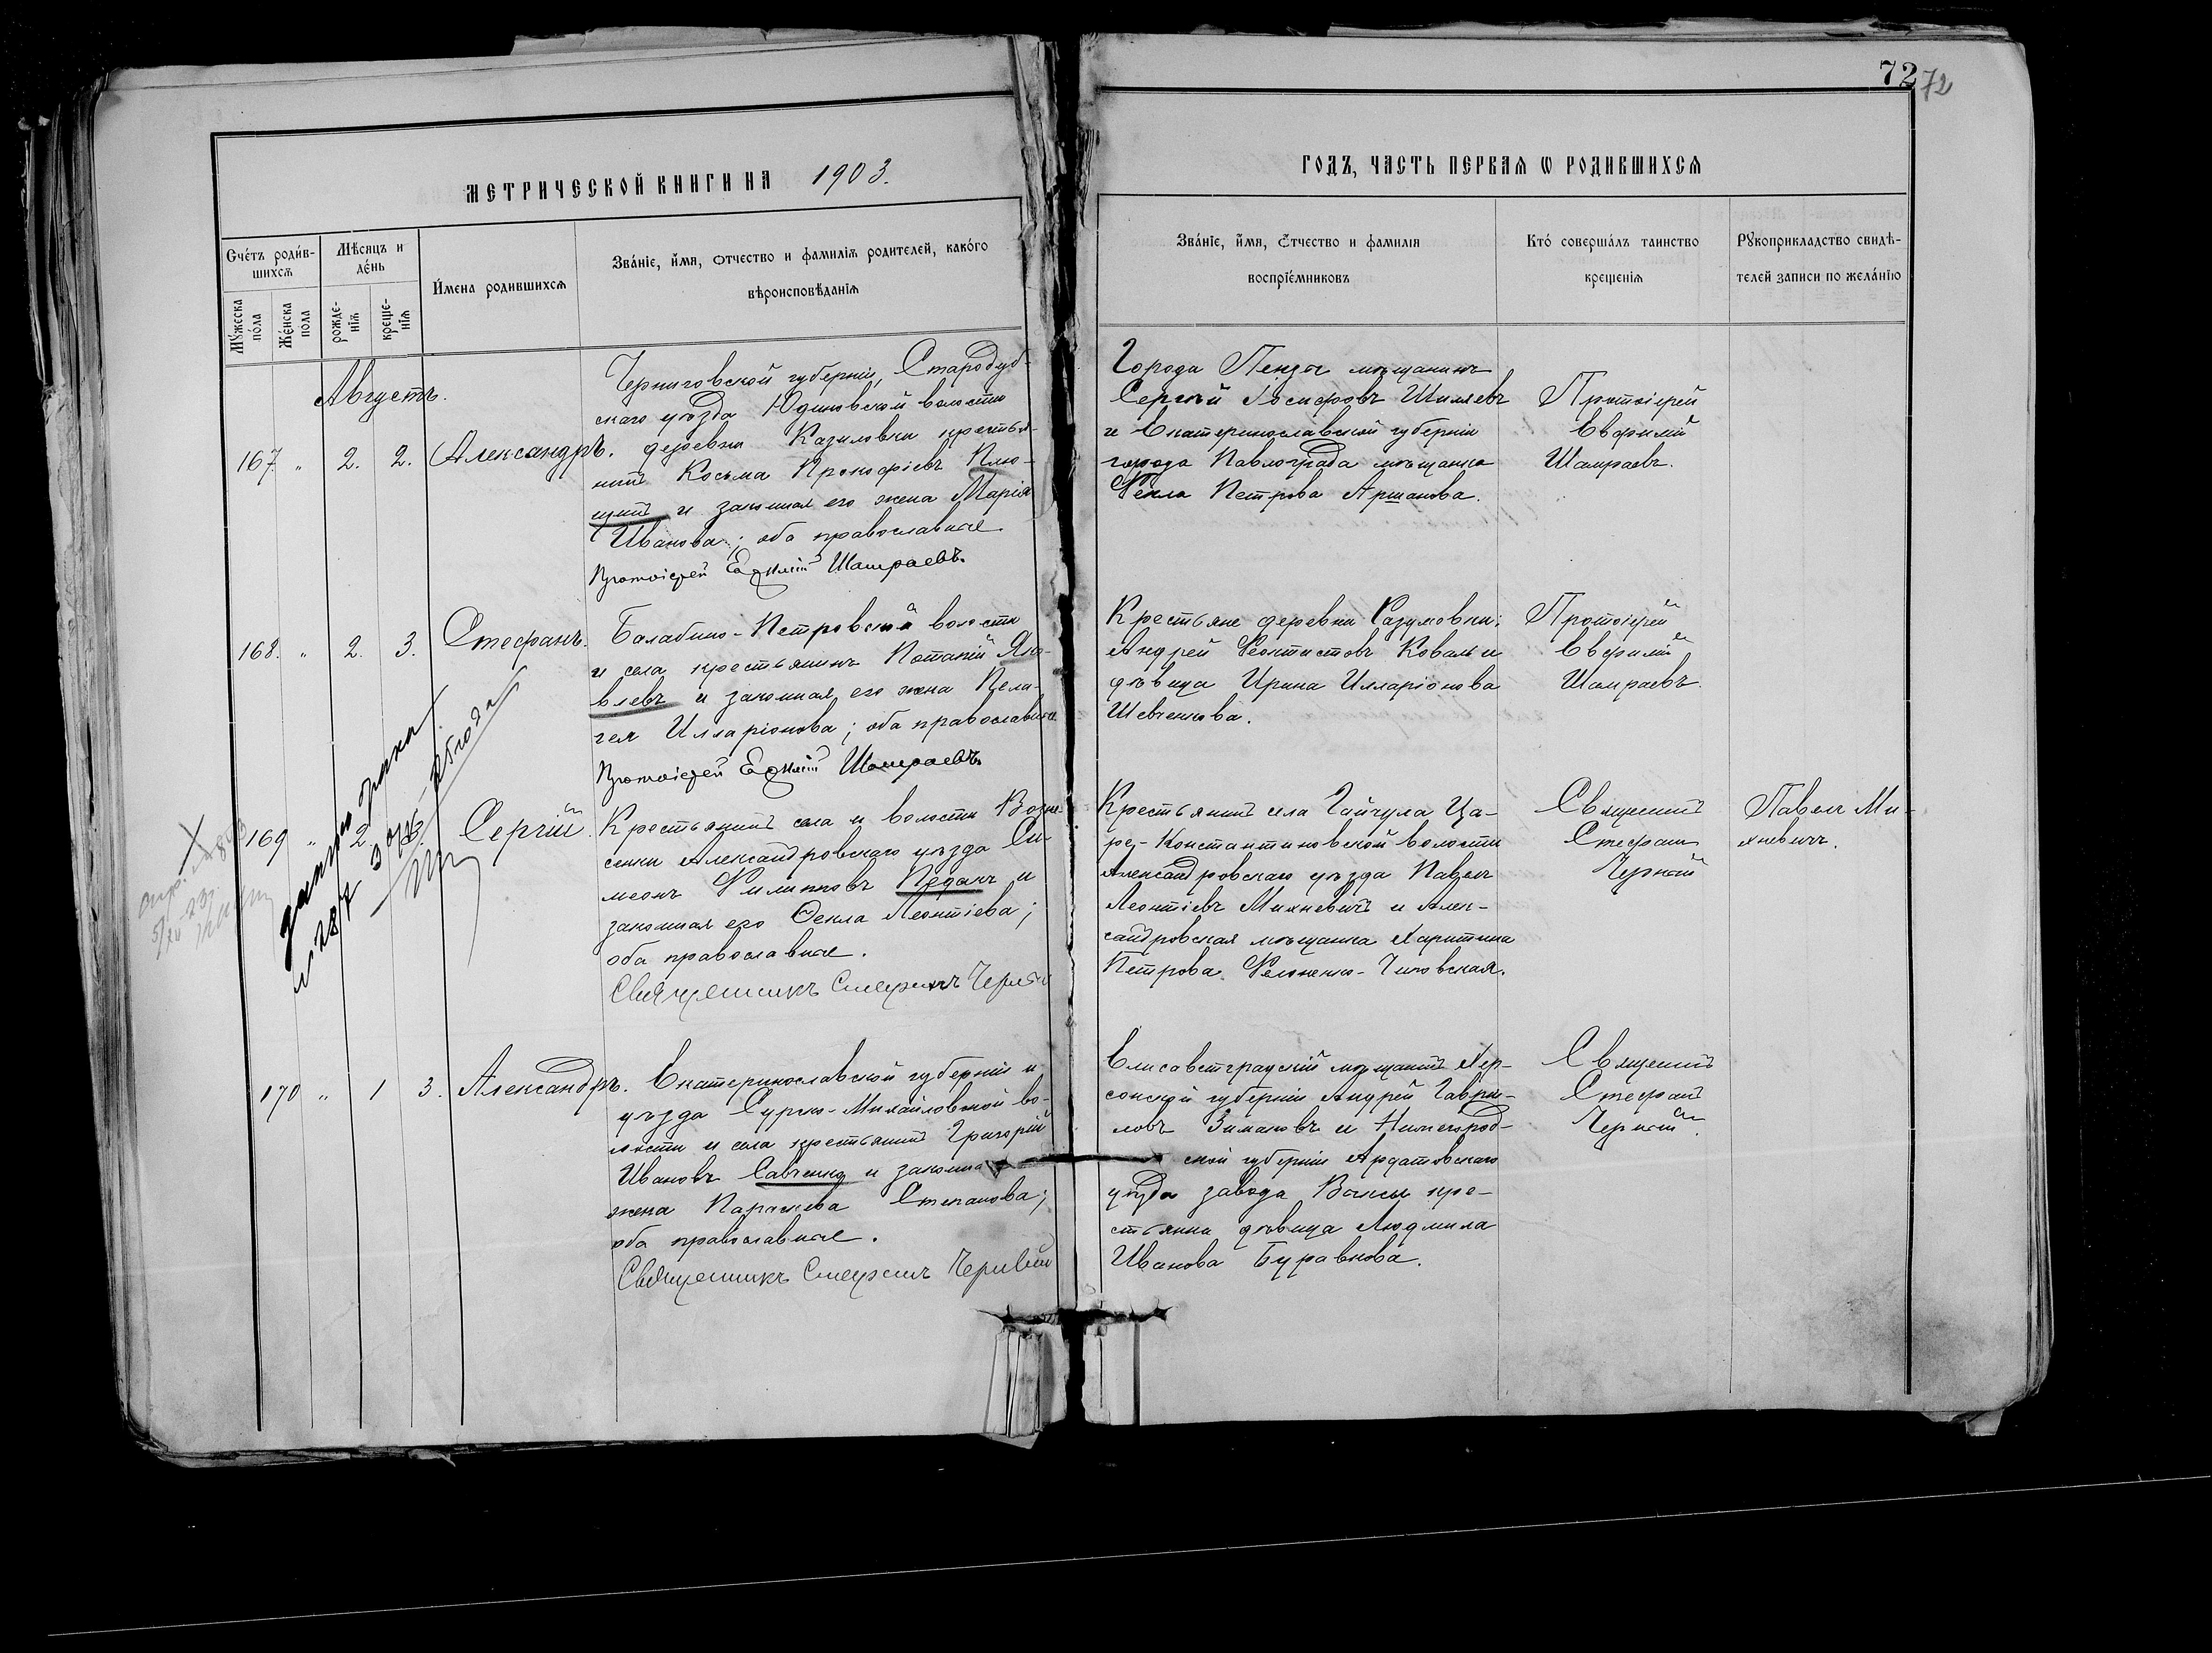 72 72
МЕТРИЧЕСКОЙ КНИГИ НА 1903.
ГОДЪ, ЧАСТЬ ПЕРВАѦ Ѡ РОДИВШИХСѦ
Счéтъ роди́в-
шихсѧ
Мꙋ́жеска по́ла
Же́нска пола
Мѣ́сѧцъ и
де́нь
рожде-
нїѧ
креще-
нїѧ
И҆́мена родившихсѧ
Зва́нїе, и҆́мѧ, ѻтчество и фамилїѧ родителей, како́го
вѣроисповѣ́данїѧ
Зва́нїе, и҆́мѧ, ѻ҆́тчество и фамилїѧ
воспрїе́мниковъ
Кто́ соверша́лъ таинство
крещенїѧ
Рꙋкоприкладство свидѣ-
телей записи по жела́нїю
Августъ.
167 " 2. 2. Александръ.
Черниговской губерніи, Стародуб-
скаго уѣзда Юдиновской волости
деревни Казиловки крестья-
нинъ Косьма Прокофіевъ Плю-
щий и законная его жена Марія
Иванова; оба православные.
Протоіерей Евѳимій Шамраевъ.
Города Пензы мѣщанинъ
Сергѣй Іосифовъ Шиляевъ
и Екатеринославской губерніи
города Павлограда мѣщанка
Ѳекла Петрова Аршанова.
Протоіерей
Евфимій
Шамраевъ.
168. " 2. 3. Стефанъ.
Балабино-Петровской волости
и села крестьянинъ Потапій Яко-
влевъ и законная его жена Пела-
гея Илларіонова; оба православные
Протоіерей Евѳимій Шамраевъ.
Крестьяне деревни Разумовки:
Андрей Ѳеоктистовъ Коваль и
дѣвица Ирина Илларіонова
Шевченкова.
Протоіерей
Евфимій
Шамраевъ.
169 " 2 3. Сергій.
Крестьянинъ села и волости Возне-
сенки Александровскаго уѣзда Си-
меонъ Филипповъ Педанъ и
законная его Ѳекла Леонтіева;
оба православные.
Священникъ Стефанъ Черный
Крестьянинъ села Гайчула Ца-
ре-Константиновской волости
Александровскаго уѣзда Павелъ
Леонтіевъ Михневичъ и Алек-
сандровская мѣщанка Харитина
Петрова Чиковская.
Священникъ
Стефанъ
Черный
Павелъ Ми-
хневичъ.
170 " 1 3. Александръ.
Екатеринославской губерніи и
уѣзда Сурско-Михайловской во-
лости и села крестьянинъ Григорій
Ивановъ Савченко и законная
жена Параскева Степанова;
оба православные.
Священникъ Стефанъ Черный
Елисаветградскій мѣщанинъ Хер-
сонской губерніи Андрей Гаври-
ловъ Зимаковъ и Нижегород-
ской губерніи Ардатовскаго
уѣзда завода Выксы кре-
стьянка дѣвица Людмила
Иванова Буравкова.
Священникъ
Стефанъ
Черный.